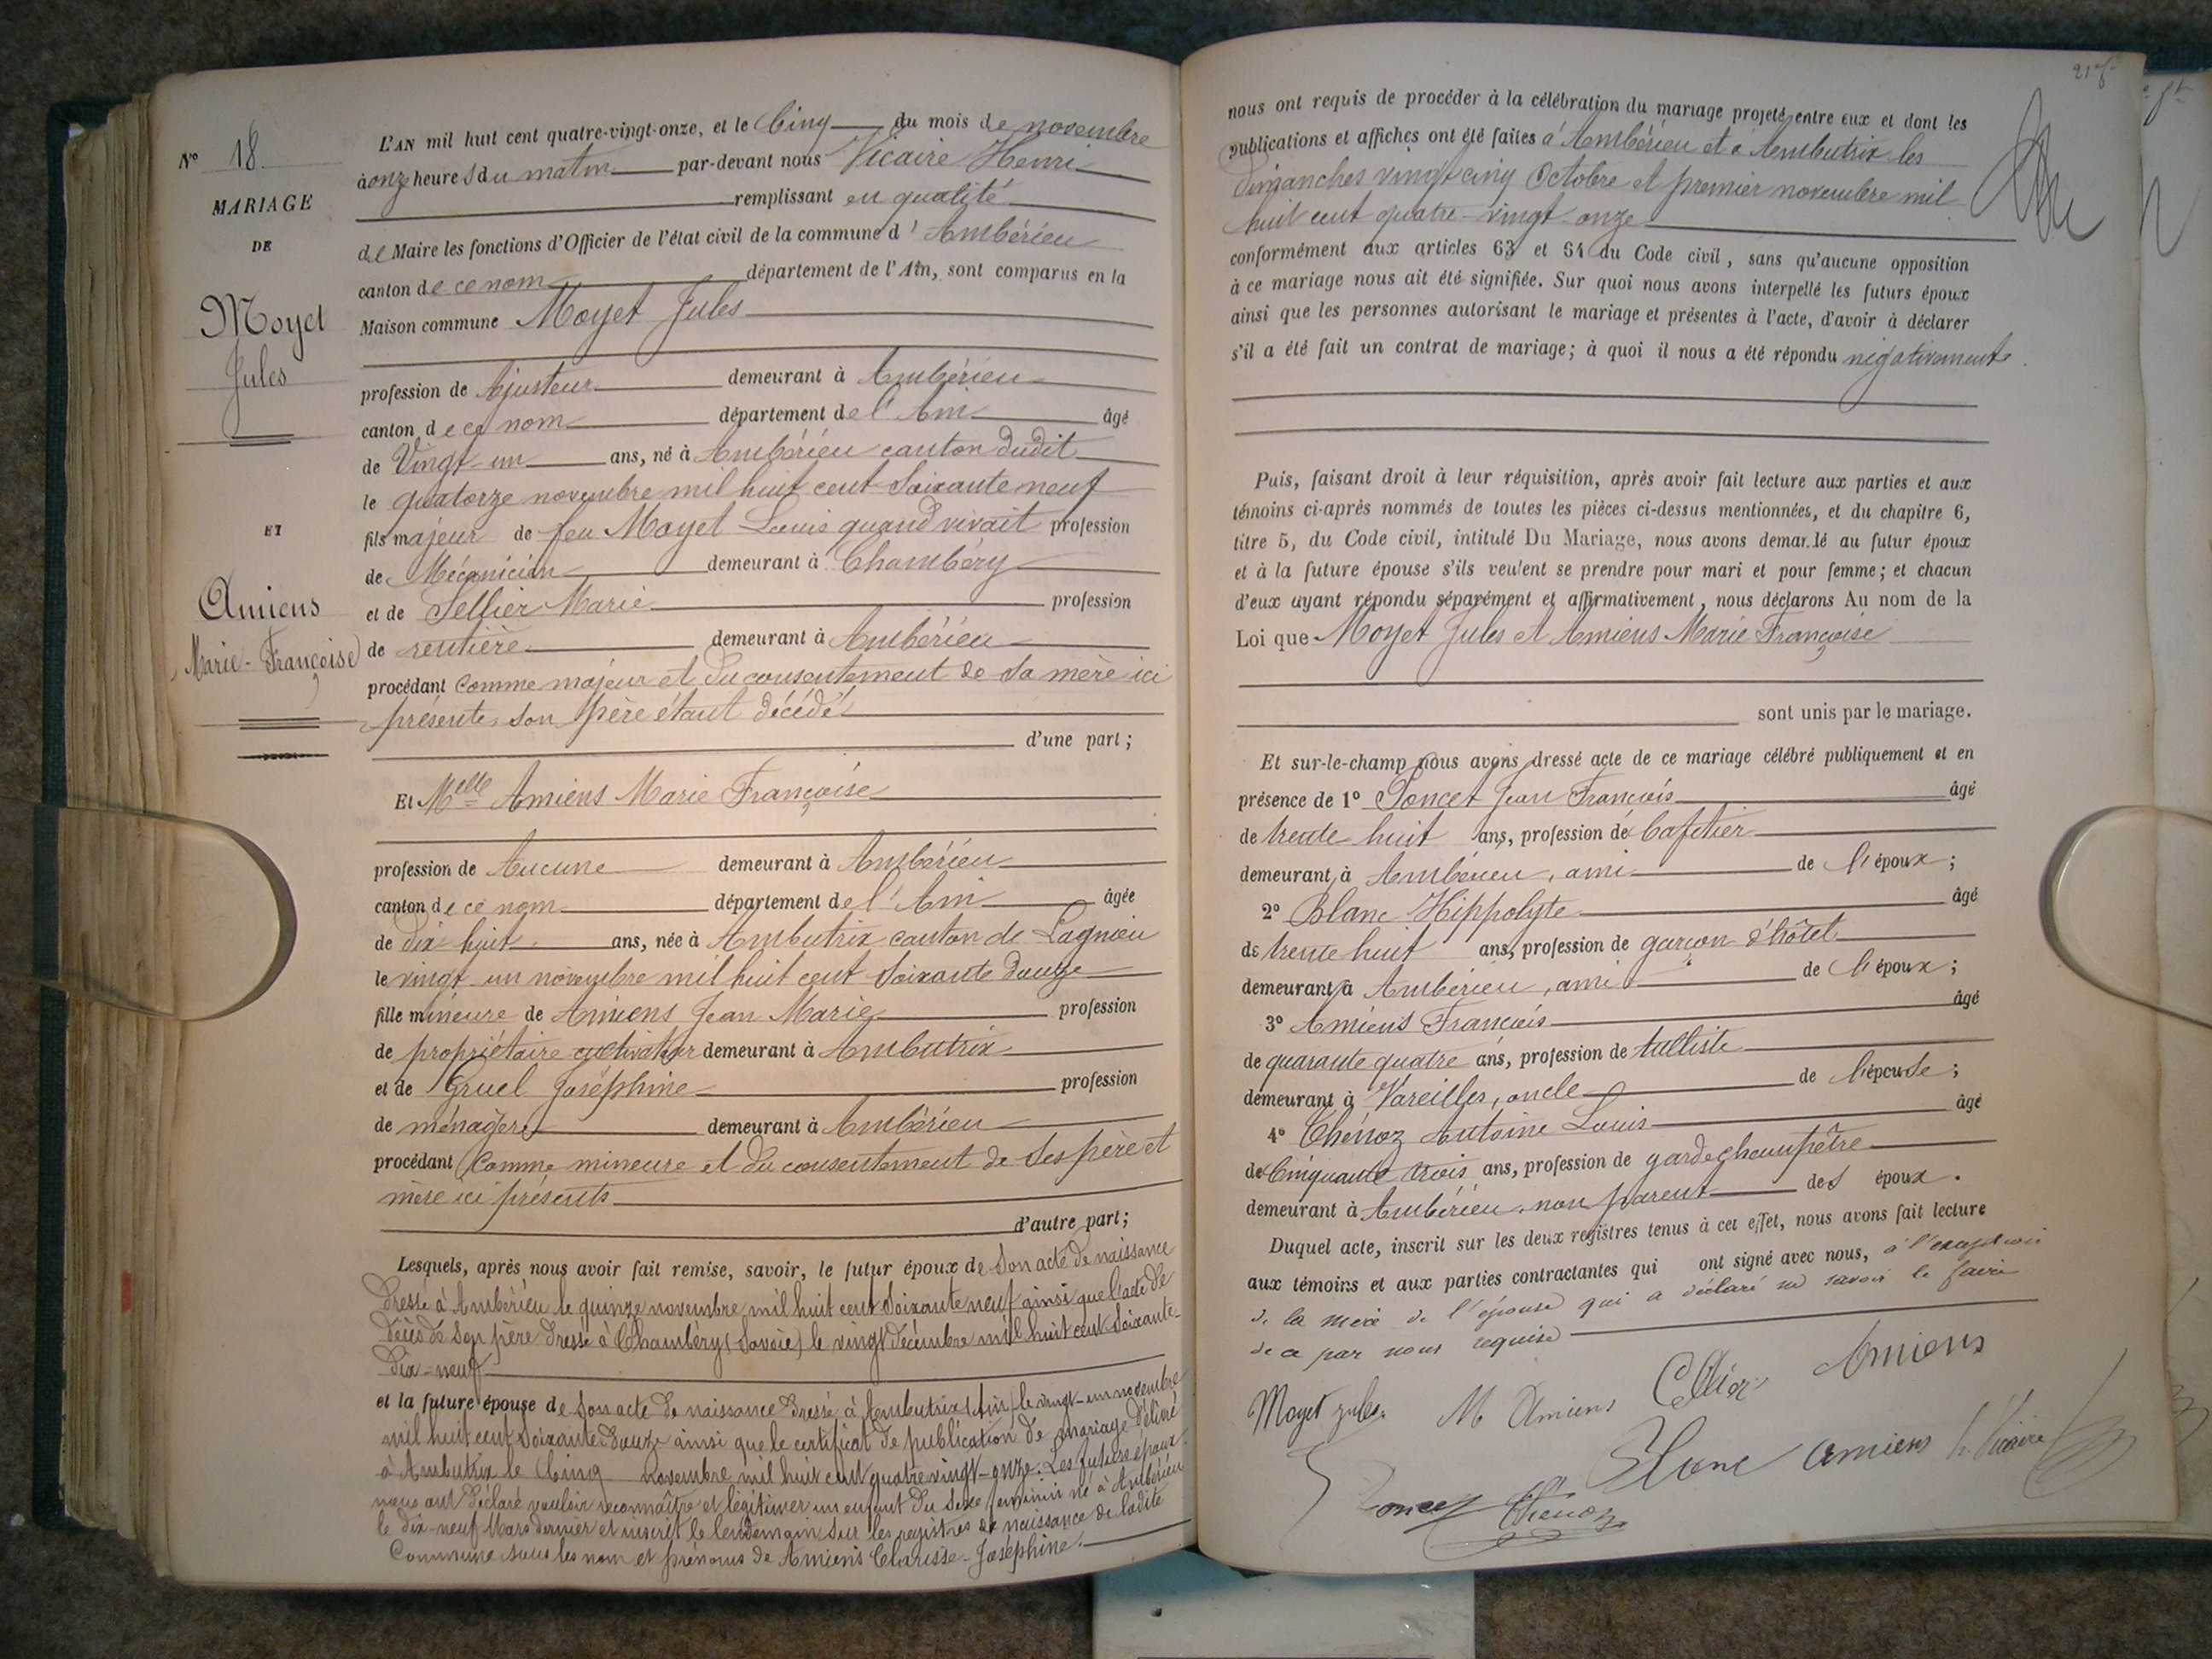 N° 18
MARIAGE
DE
Moyet
Jules
ET
Amiens
Marie-Françoise
L'AN mil huit cent quatre-vingt-onze, et le Cinq du mois de novembre
à onze heures du matin par-devant nous Vicaire Henri
remplissant en qualité
de Maire les fonctions d'Officier de l'état civil de la commune d'Ambérieu
canton de ce nom département de l'Ain, sont comparus en la
Maison commune Moyet Jules
profession de Ajusteur demeurant à Ambérieu
canton de ce nom département de l'Ain âgé
de Vingt-un ans, né à Ambérieu canton dudit
le quatorze novembre mil huit cent soixante neuf
fils majeur de feu Moyet Louis quand vivait profession
de Mécanicien demeurant à Chambéry
et de Sellier Marie profession
de rentière demeurant à Ambérieu
procédant comme majeur et du consentement de sa mère ici
présente, son père étant décédé
d'une part;
Et Melle Amiens Marie Françoise
profession de Aucune demeurant à Ambérieu
canton de ce nom département de l'Ain âgée
de dix-huit ans, née à Ambutrix canton de Lagnieu
le vingt-un novembre mil huit cent soixante douze
fille mineure de Amiens Jean Marie profession
de propriétaire cultivateur demeurant à Ambutrix
et de Gruel Joséphine profession
de ménagère demeurant à Ambérieu
procédant comme mineure et du consentement de ses père et
mère ici présents
d'autre part;
Lesquels, après nous avoir fait remise, savoir, le futur époux de son acte de naissance
dressé à Ambérieu le quinze novembre mil huit cent soixante neuf ainsi que l'acte de
décès de son père dressé à Chambéry (Savoie) le vingt décembre mil huit cent soixante-
dix-neuf
et la future épouse de son acte de naissance dressé à Ambutrix (Ain) le vingt-un novembre
mil huit cent soixante douze ainsi que le certificat de publication de mariage délivré
à Ambutrix le Cinq novembre mil huit cent quatre vingt-onze. Les futurs époux
nous ont déclaré vouloir reconnaître et légitimer un enfant du sexe féminin né à Ambérieu
le dix-neuf Mars dernier et inscrit le lendemain sur les registres de naissance de ladite
Commune sous les nom et prénoms de Amiens Clarisse-Joséphine.
nous ont requis de procéder à la célébration du mariage projeté entre eux et dont les
publications et affiches ont été faites à Ambérieu et à Ambutrix les
dimanches vingt cinq Octobre et premier novembre mil
huit cent quatre-vingt-onze
conformément aux articles 63 et 64 du Code civil, sans qu'aucune opposition
à ce mariage nous ait été signifiée. Sur quoi nous avons interpellé les futurs époux
ainsi que les personnes autorisant le mariage et présentes à l'acte, d'avoir à déclarer
s'il a été fait un contrat de mariage; à quoi il nous a été répondu négativement.
Puis, faisant droit à leur réquisition, après avoir fait lecture aux parties et aux
témoins ci-après nommés de toutes les pièces ci-dessus mentionnées, et du chapitre 6,
titre 5, du Code civil, intitulé Du Mariage, nous avons demandé au futur époux
et à la future épouse s'ils veulent se prendre pour mari et pour femme; et chacun
d'eux ayant répondu séparément et affirmativement, nous déclarons Au nom de la
Loi que Moyet Jules et Amiens Marie Françoise
sont unis par le mariage.
Et sur-le-champ nous avons dressé acte de ce mariage célébré publiquement et en
présence de 1° Poncet Jean François âgé
de trente huit ans, profession de Cafetier
demeurant à Ambérieu, ami de l'époux;
2° Blanc Hippolyte âgé
de trente huit ans, profession de garçon d'hôtel
demeurant à Ambérieu, ami de l'époux;
3° Amiens François âgé
de quarante quatre ans, profession de tulliste
demeurant à Vareilles, oncle de l'épouse;
4° Chénoz Antoine Louis âgé
de Cinquante trois ans, profession de garde champêtre
demeurant à Ambérieu, non parent des époux.
Duquel acte, inscrit sur les deux registres tenus à cet effet, nous avons fait lecture
aux témoins et aux parties contractantes qui ont signé avec nous, à l'exception
de la mère de l'épouse qui a déclaré ne savoir le faire
de ce par nous requise
Moyet Jules M Amiens Amiens
Blanc Amiens H. Vicaire
Poncet Chénoz